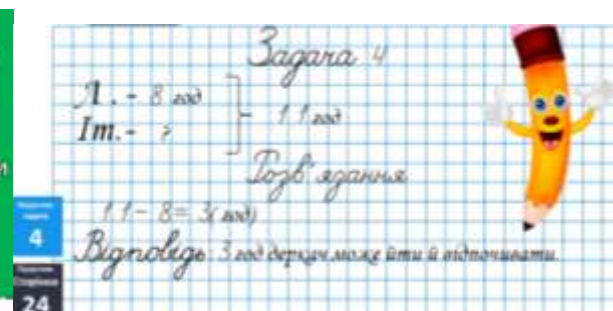 Задача 4
Л. - 8 год
Іт.- ?
11 год
Розв'язання
11 - 8 = 3( год)
4
Відповідь: 3 год деркач може йти й відпочивати.
24